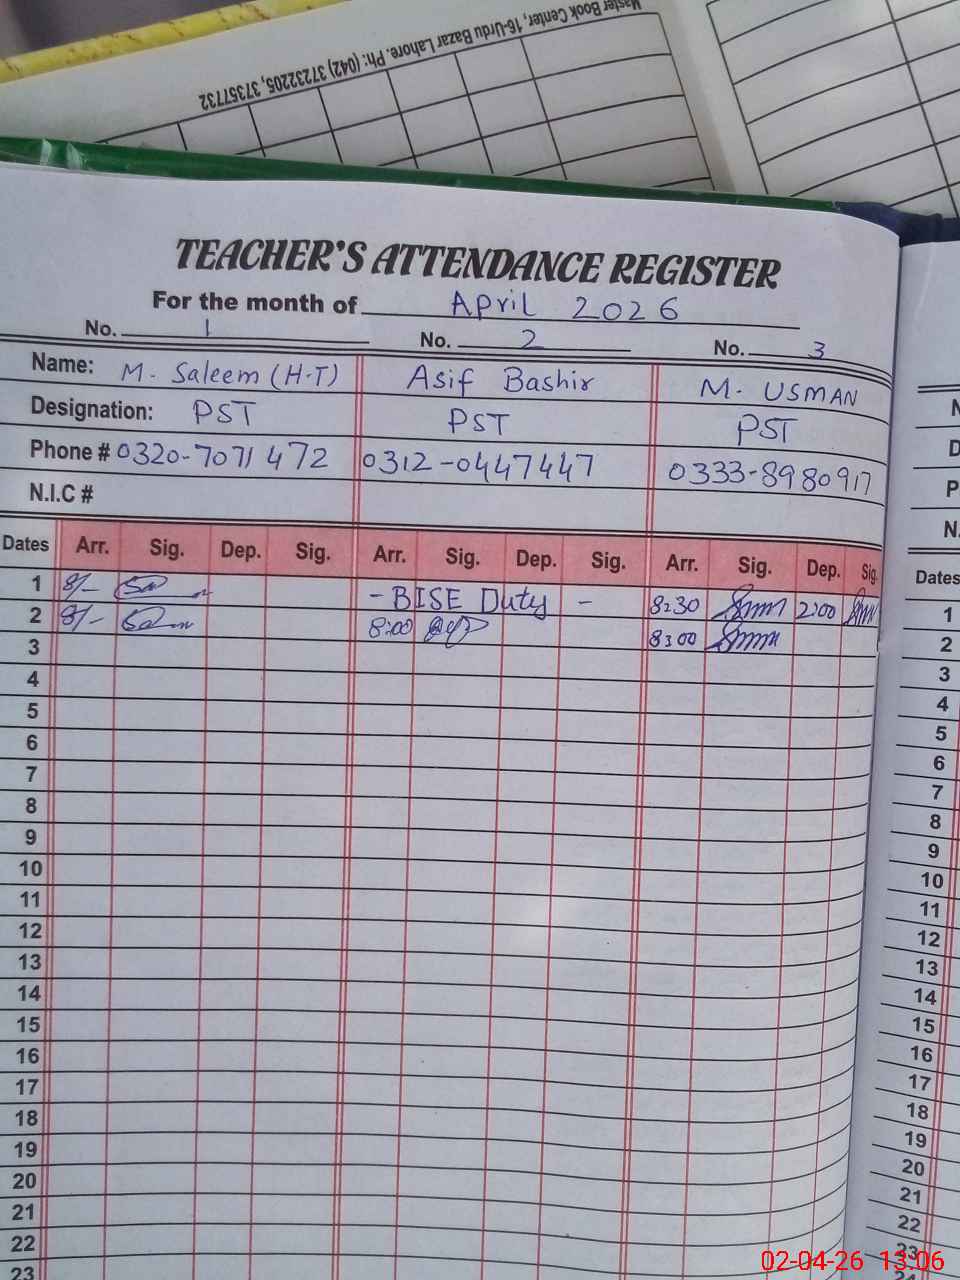 Master Book Center, 16-Urdu Bazar Lahore. Ph: (042) 37232205, 37357732
TEACHER'S ATTENDANCE REGISTER
For the month of April 2026
No. 1 No. 2 No. 3
Name: M. Saleem (H.T) Asif Bashir M. USMAN
Designation: PST PST PST
Phone # 0320-7071472 0312-0447447 0333-8980917
N.I.C #
Dates Arr. Sig. Dep. Sig. Arr. Sig. Dep. Sig. Arr. Sig. Dep. Sig.
1 8/- - BISE Duty - 8:30 2:00
2 8/- 8:00 8:00
3
4
5
6
7
8
9
10
11
12
13
14
15
16
17
18
19
20
21
22
23
N
D
P
N.
Dates
1
2
3
4
5
6
7
8
9
10
11
12
13
14
15
16
17
18
19
20
21
22
23
24
02-04-26 13:06